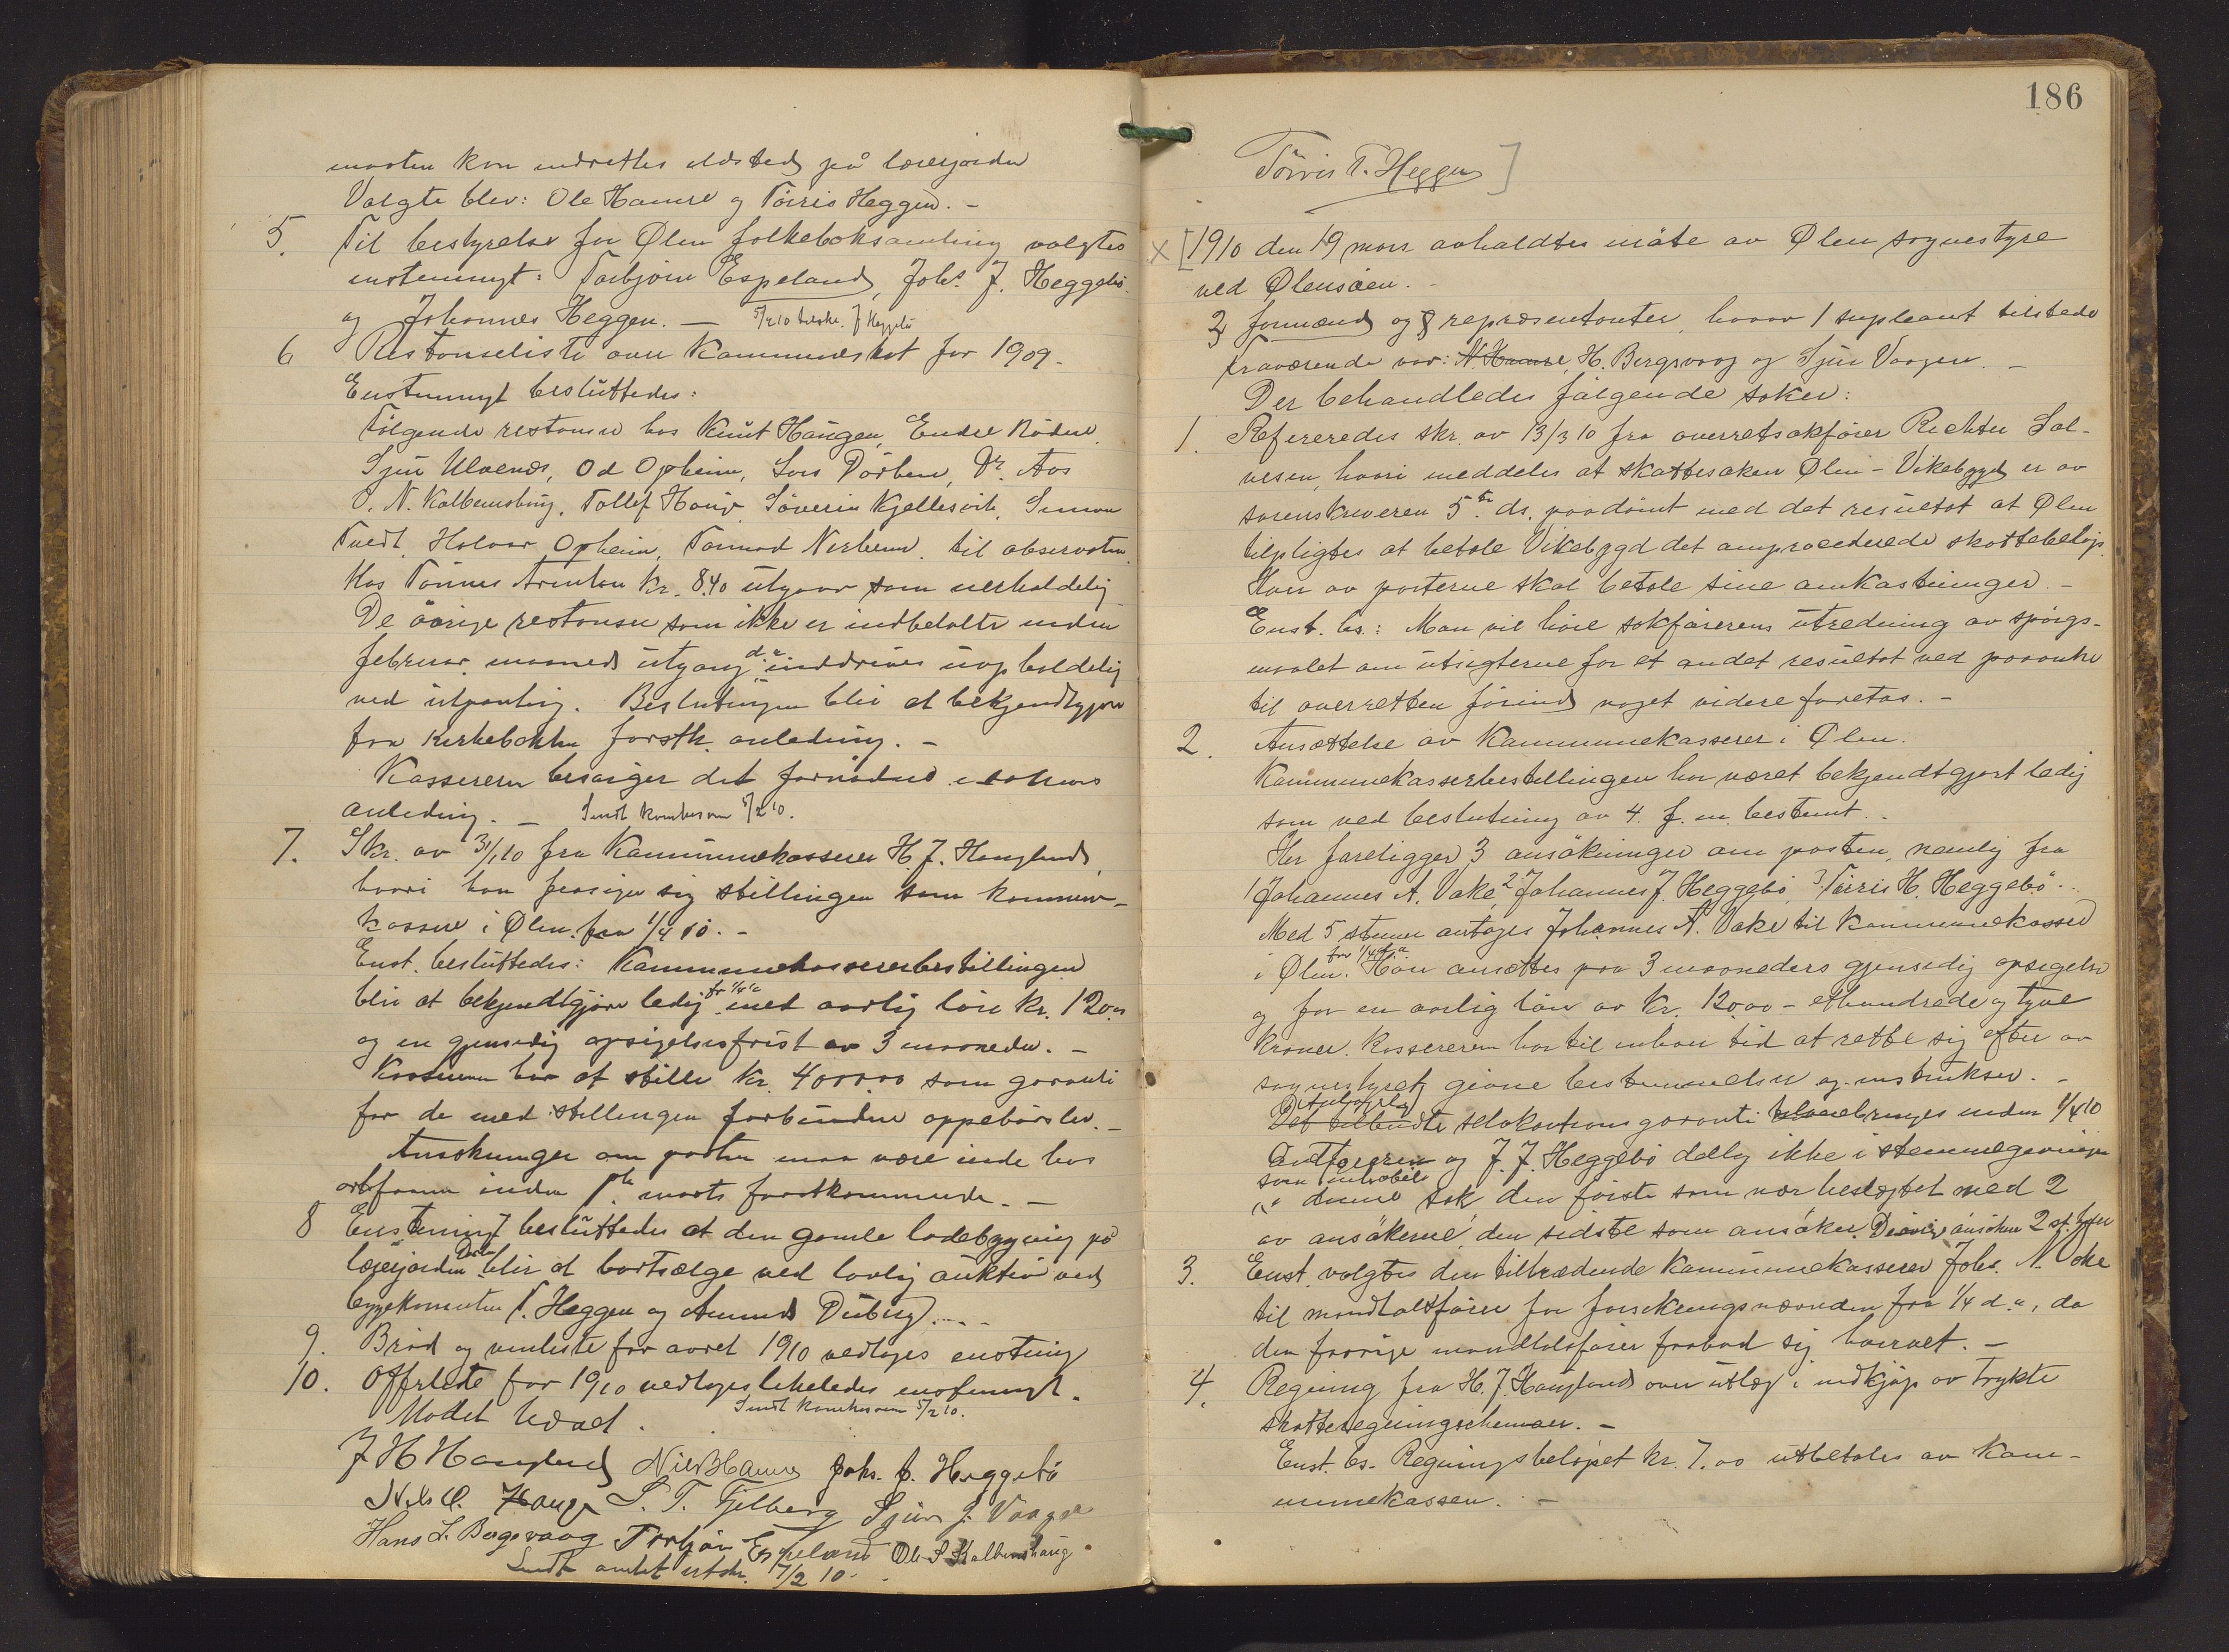 maaten kan indrettes ildsted på lærerjorden
Valgte blev: Ole Hamre og Törris Heggen. -
5. Til bestyrelse for Ølen folkeboksamling valgtes
enstemmigt: Torbjörn Espeland, Johs. J. Heggebö
og Johannes Heggen. — 5/2 10 tilskr. J Heggebö
6 Restanseliste over Kommuneskat for 1909.
Enstemmigt besluttedes:
Fölgende restanser hos Knut Haugen, Endre Rödne,
Sjur Ulvenes, Od Opheim, Lars Dörheim, Dr. Aas
O. N. Kalbenshaug, Tollef Hauge, Söverin Kjellesvik, Simon
Tvedt, Halvor Opheim, Tormod Nerheim til observation
Hos Tönnes Arentsen Kr. 8.40 utgaar som uerholdelig
De övrige restanser som ikke er indbetalte inden
februar maaned utgang d.a. inddrives uopholdelig
ved utpanting. Beslutningen blir at bekjendtgjøre
fra kirkebakken forstk. anledning. -
Kassereren besörger det fornödne i sakens
anledning. — Sendt komkasserer 5/2 10.
7. Skr. av 31/1 10 fra Kommunekasserer H. J. Haugland,
hvori han frasiger sig stillingen som kommune-
kasserer i Ølen fra 1/4 10. -
Enst. besluttedes: Kommunekassererbestillingen
blir at bekjendtgjøre ledig fr 1/4 d.a. med aarlig lön kr. 120.00
og en gjensidig opsigelsesfrist av 3 maaneder. -
Kassereren har at stille Kr. 4000.00 som garanti
for de med stillingen forbundne oppebörsler. -
Ansökninger om posten maa være inde hos
ordföreren inden 1ste marts förstkommende. -
8 Enstemmigt besluttedes at den gamle ladebygning på
lægejorden Dalen blir at bortsælge ved lovlig auktion ved
byggekomiteen T. Heggen og Amund Duberg. -
9. Bröd og vinliste for aaret 1910 vedtoges enstemig
10. Offrliste for 1910 vedtoges likeledes enstemigt.
Mödet hævet. Sendt komkasserer 5/2 10.
J H Haugland Nils Hamre Johs. J. Heggebö
Nils O. Hauge S. T. Fjelberg Sjur J. Vaagen
Hans L. Bergsvaag Torbjörn Espeland Ole S Kalbenshaug
Sendt amtet utskr. 7/2 10.
186
Törris T. Heggen ]
x [1910 den 19 mars avholdtes möte av Ølen sognestyre
ved Ølensöen.
3 formænd og 8 repræsentanter, hvorav 1 supleant tilstede
Fraværende var: N. Hamre, H. Bergsvaag og Sjur Vaagen. -
Der behandledes fölgende saker:
1. Refereredes skr. av 13/3 10 fra overretssakfører Richter Sal-
vesen, hvori meddeles at skattesaken Ølen - Vikebygd er av
sorenskriveren 5te ds. paadömt med det resultat at Ølen
tilpligtes at betale Vikebygd det omprocederede skattebelöp
Hver av parterne skal betale sine omkostninger. -
Enst. bs.: Man vil höre sakförerens utredning av spörgs-
maalet om utsigterne for et andet resultat ved paaanke
til overretten förind noget videre foretas. -
2. Ansættelse av Kommunekasserer i Ølen.
Kommunekassererbestillingen har været bekjendtgjort ledig
som ved beslutning av 4. f. m. bestemt.
Her foreligger 3 ansökninger om posten, nemlig fra
1 Johannes A. Vake, 2 Johannes J. Heggebö, 3 Törris H. Heggebö.
Med 5 stemmer antoges Johannes A. Vake til Kommunekasserer
i Ølen fra 1/4 d.a. Han ansættes paa 3 maaneders gjensidig opsigelse
og for en aarlig lön av Kr. 120.00 - ethundrede og tyve
kroner. Kassereren har til enhver tid at rette sig efter av
sognestyret givne bestemmelser og instrukser. -
Det tilbudte selvkautions garanti tilveiebringes inden 1/4 10
Ordføreren og J. J. Heggebö deltog ikke i stemmegivningen
som inhabile
i denne sak den förste som nær beslægtet med 2
av ansökerne, den sidste som ansöker. De övrige ansökere 2 st. hver
3. Enst. valgtes den tiltrædende kommunekasserer Johs. A. Vake
til mandtalsförer for forsikringsnævnden fra 1/4 d.a., da
den forrige mandtalsförer frabad sig hvervet. -
4. Regning fra H. J. Haugland over utlæg i indkjöp av trykte
skatteregningschemaer. -
Enst. bs. Regningsbelöpet kr. 7.00 utbetales av kom-
munekassen. -